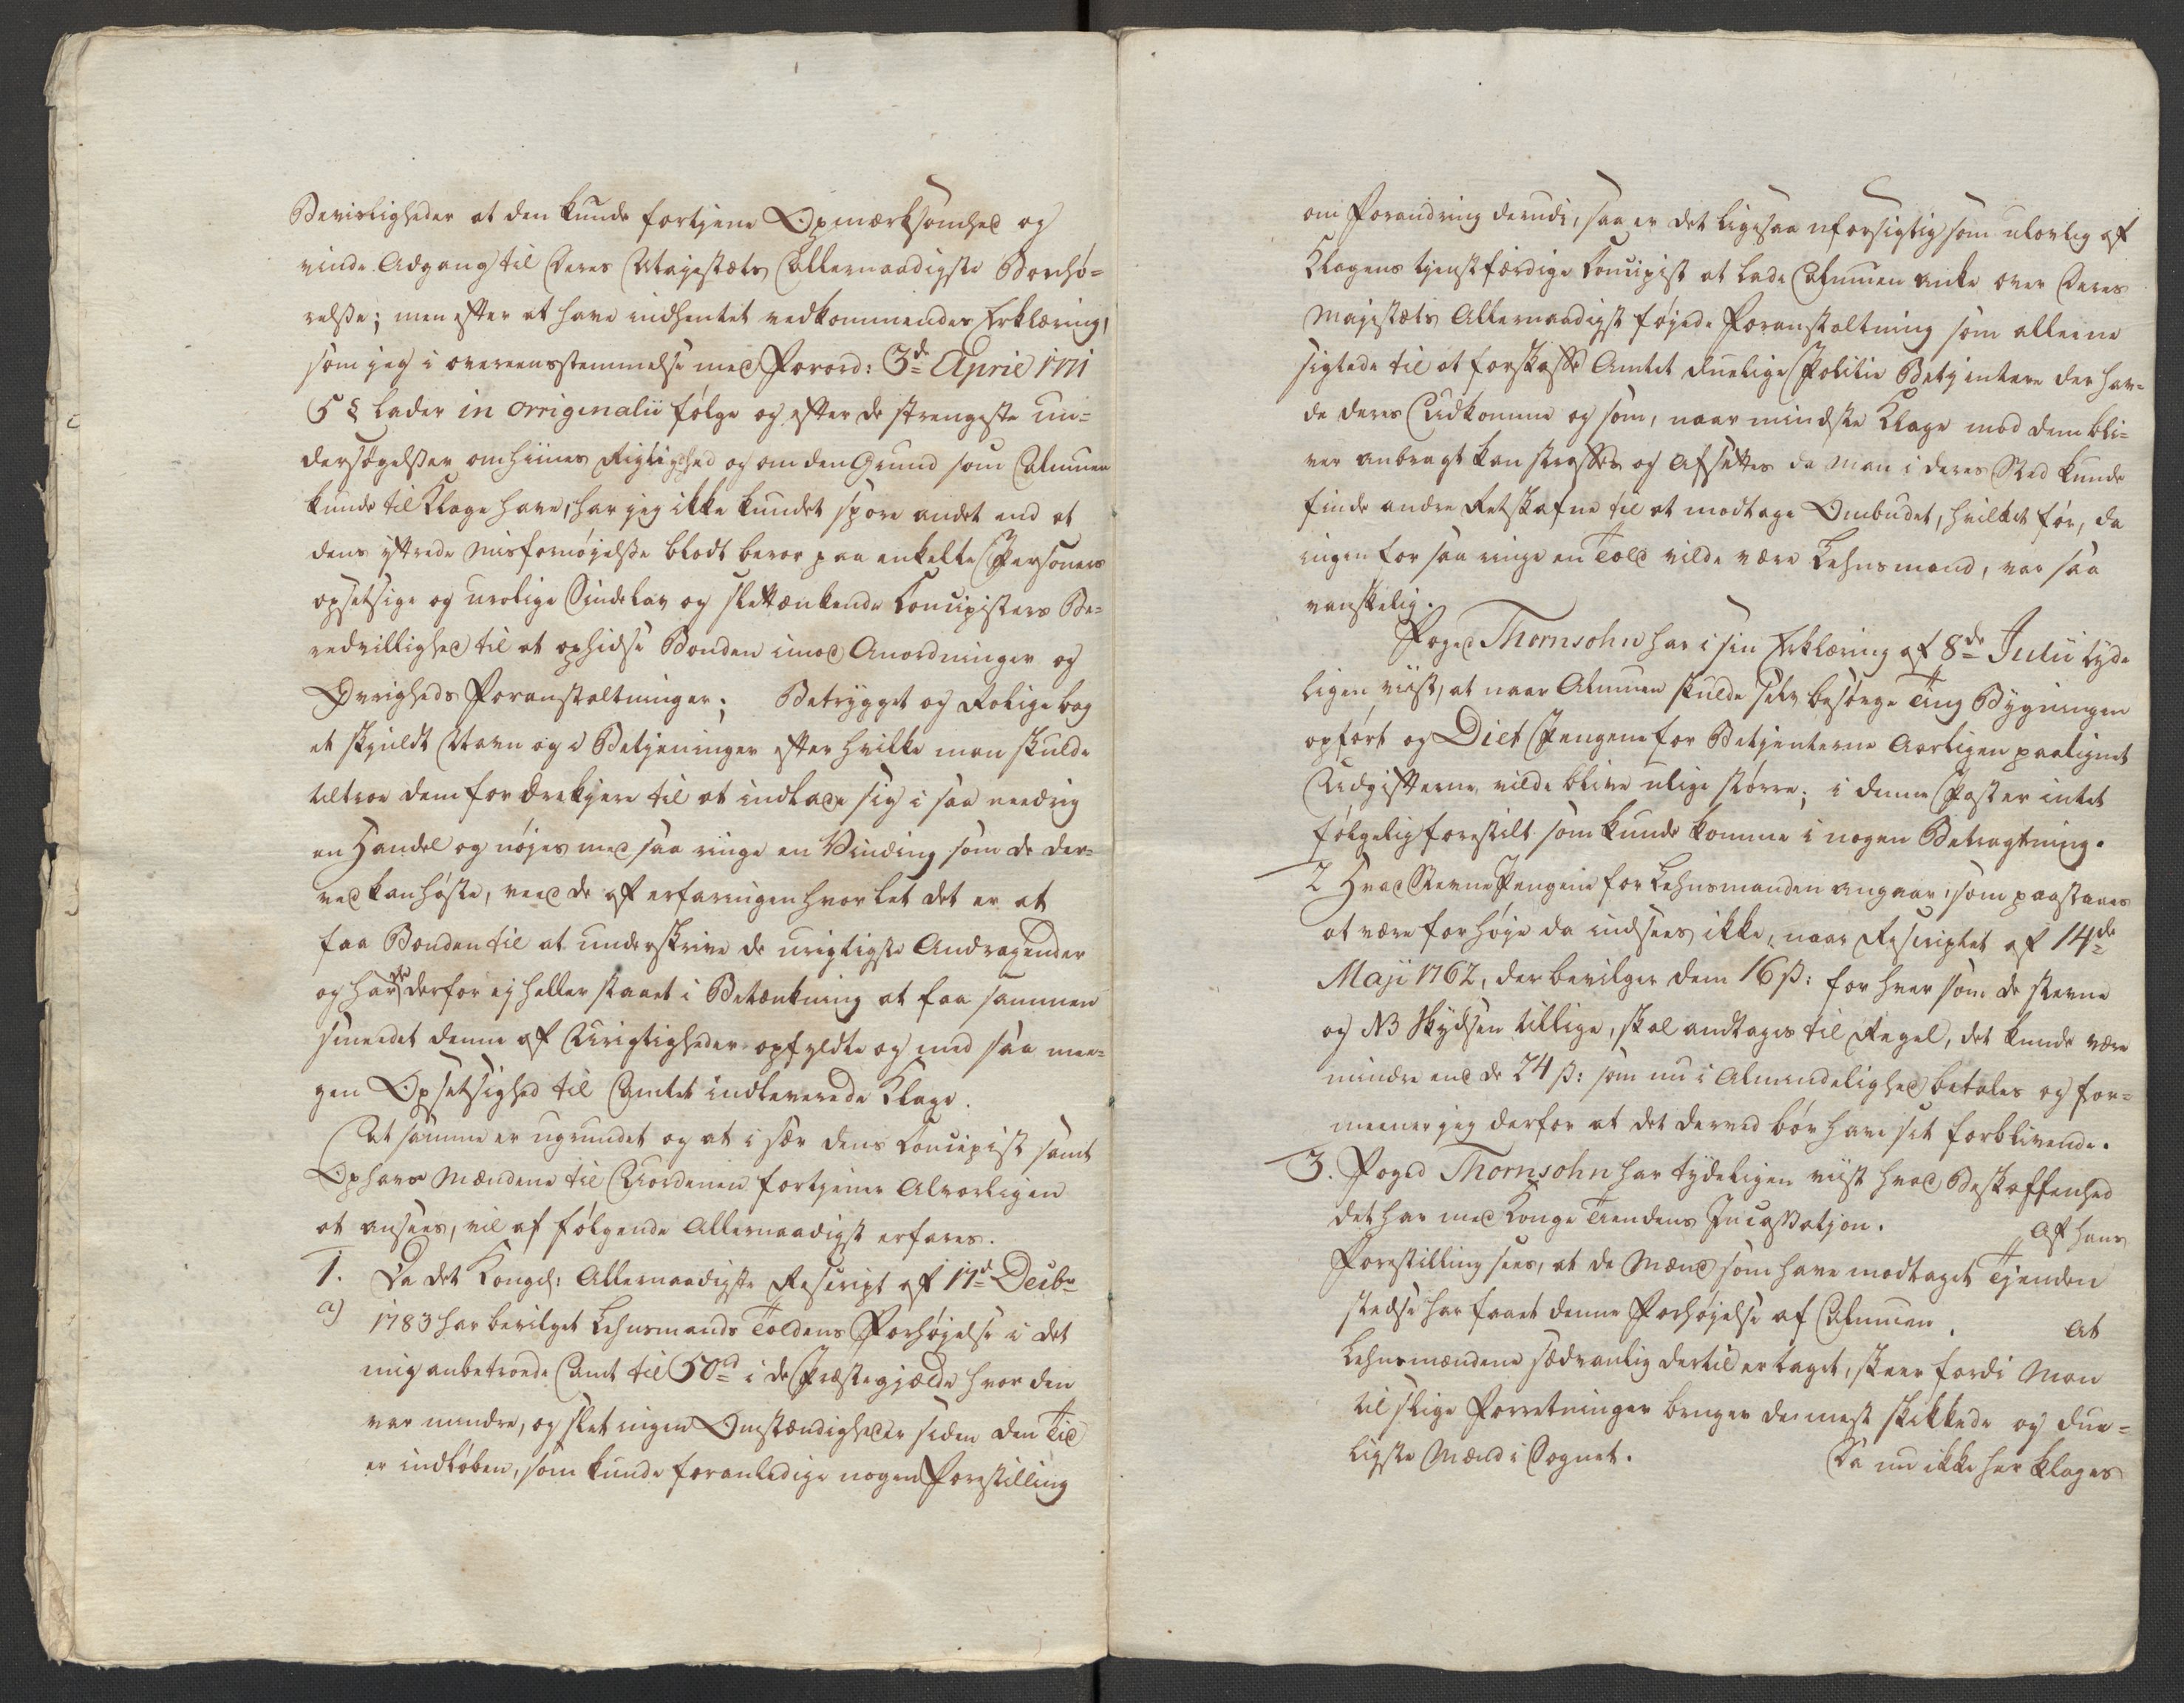 Bevisligheder at den kunde fortjene Opmærksomhed og
vinde Adgang til Deres Majestæts Allernaadigste Bønhø-
relse; men efter at have indhentet vedkommendes Erklæring,
som jeg i overeensstemmelse med Forord: 3de April 1771
5 § lader in originalii følge og efter de strængeste un-
dersøgelser om hiines Rigtighed og om den Grund som Almuen
kunde til Klage have, har jeg ikke kundet spore andet end at
dens yttrede misfornøyelse blodt beror paa enkelte Personers
opsetsige og urolige Sindelav og slettænkende Concipisters Be-
redvillighed til at ophidse Bonden imod Anordninger og
Øvrigheds Foranstaltninger; Betrygget og Rolige bag
et skjuldt Navn og i Betjeninger efter hvilke man skulde
tiltroe dem for ærekjere til at indlade sig i saa needrig
en Handel og nøjes med saa ringe en Vinding som de der-
ved kan høste, veed de af erfaringen hvor let det er at
faa Bonden til at underskrive de urigtigste Andragender
og havde derfor ej heller staaet i Betænkning at faa sammen
smeedet denne af Urigtigheder opfyldte og med saa me-
gen Opsetsighed til Amtet indleverede Klage.
At samme er ugrundet og at i sær dens Concipist samt
Ophavs Mændene til Uordenen fortjener Alvorligen
at ansees, vil af følgende Allernaadigst erfares.
1. Da det Kongel: Allernaadigste Rescript af 17d Decbr
a) 1783 har bevilget Lehnsmands Toldens Forhøjelse i det
mig anbetroede Amt til 50d i de Præstegjælde hvor den
var mindre, og slet ingen Omstændigheder siden den Tid
er indløben, som kunde foranledige nogen Forestilling
om Forandring derudi, saa er det ligesaa uforsigtig som ulovlig af
Klagens tjenstfærdige Concipist at lade Almuen anke over Deres
Majestæts Allernaadigst føjede Foranstaltning som alleene
sigtede til at forskaffe Amtet duelige Politie Betjentere der hav-
de deres Udkomme og som, naar mindste Klage mod dem bli-
ver anbragt kan straffes og Afsettes da man i deres Sted kunde
finde andre Retskafne til at modtage Ombudet, hvilket før, da
ingen for saa ringe en Told vilde være Lehnsmand, var saa
vanskelig.
Foged Thornsohn har i sin Erklæring af 8de Julii tyde
ligen viist, at naar Almuen skulde selv besørge Ting Bygningen
opført og Diet Pengene for Betjenterne Aarligen paalignet
Udgifterne vilde blive ulige større; i denne Post er intet
følgelig forestilt som kunde komme i nogen Betragtning.
2 Hvad Stevne Pengene for Lehnsmanden angaar, som paastaaes
at være for høje da indsees ikke, naar Rescriptet af 14de
Maji 1762, der bevilger dem 16 ß: for hver som de stevne
og NB Skydsen tillige, skal andtages til Regel, det kunde være
mindre end de 24 ß: som nu i Almindelighed betales og for-
meener jeg derfor at det derved bør have sit forblivende.
3. Foged Thornsohn har tydeligen viist hvad Beskaffenhed
det har med Konge Tiendens Incassation. Af hans
Forestilling sees, at de Mænd som have modtaget Tjenden
stedse har faaet denne Forhøjelse af Almuen. At
Lehnsmændene sædvanlig dertil er taget, skeer fordi Man
til slige Forretninger bruger de mest skikkede og due-
ligste Mænd i Sognet. Da nu ikke her klages